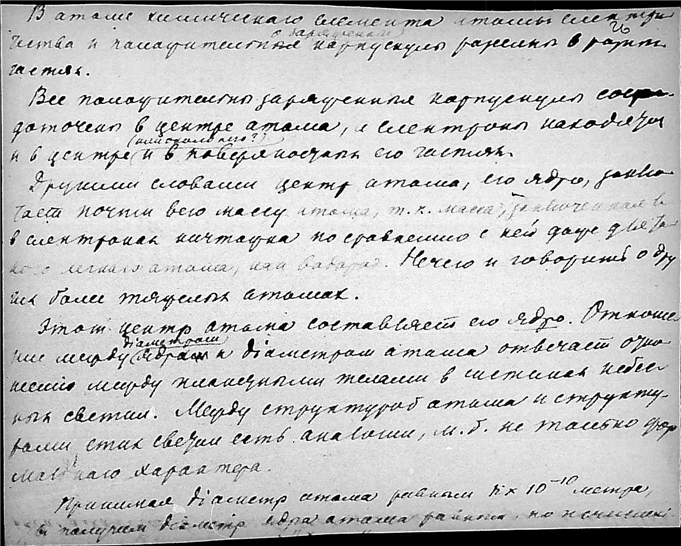 В атоме химического элемента атомы электри
чества и положительные заряженные корпускулы разделены в разных
частях.
Все положительно заряженныя корпускулы сосре-
доточены в центре атома, а електроны находятся
и в центре и в поверхностных его частях.
Другими словами центр атома, его ядро, заклю-
чает почти всю массу атома, т. к. масса, заключенная в
в електронах ничтожна по сравнению с ней даже для та-
кого легкаго атома, как водород. Нечего и говорить о дру
гих более тяжелых атомах.
Этот центр атома составляет его ядро. Отноше-
ние между диаметром ядра и диаметром атома отвечает отно-
шению между конечными телами в системах небес-
ных светил. Между структурой атома и структу-
рами етих светил есть аналогии, м. б. не только фор
мальнаго характера.
Принимая диаметр атома равным × 10⁻¹⁰ метра,
получим диаметр ядра атома равным, по исчислени